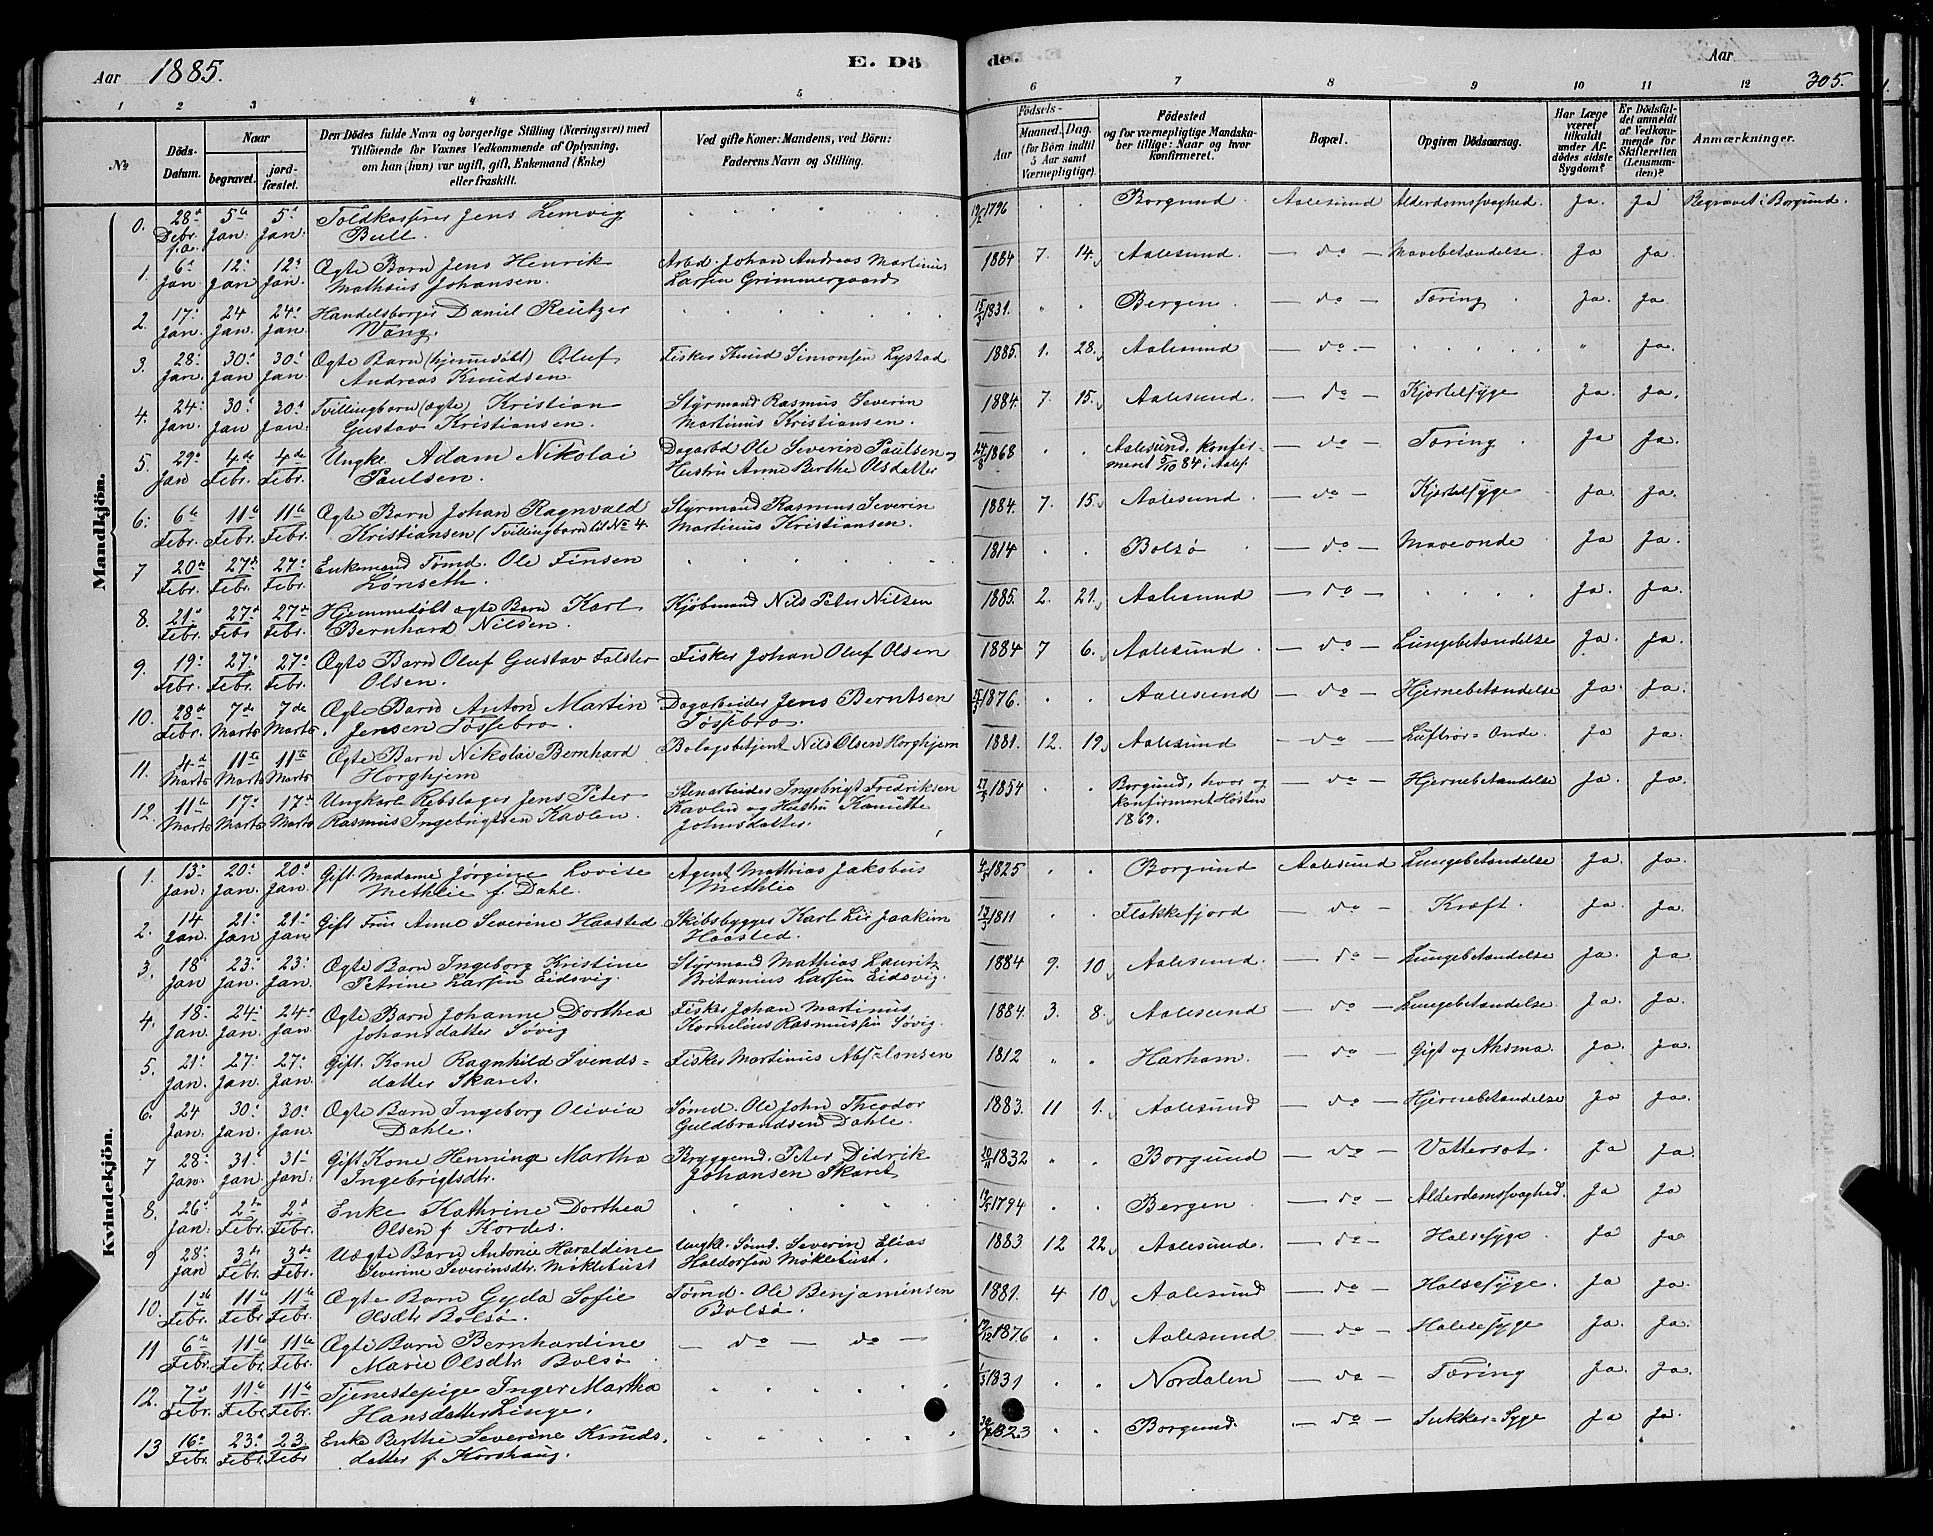 Aar 1885. E. Dö
de. Aar 305.
1 2 3 4 5 6 7 8 9 10 11 12
No
Döds-Datum.
Naar
begravet.
jord-fæstet.
Den Dödes fulde Navn og borgerlige Stilling (Næringsvei) med
Tilföiende for Voxnes Vedkommende af Oplysning,
om han (hun) var ugift, gift, Enkemand (Enke)
eller fraskilt.
Ved gifte Koner: Mandens, ved Börn:
Faderens Navn og Stilling.
Födsels-
Aar Maaned. Dag.
(for Börn indtil
5 Aar samt
Værnepligtige).
Födested
og for værnepligtige Mandska-
ber tillige: Naar og hvor
konfirmeret.
Bopæl.
Opgiven Dödsaarsag.
Har Læge
været
tilkaldt
under Af-
dödes sidste
Sygdom?
Er Dödsfal-
det anmeldt
af Vedkom-
mende for
Skifteretten
(Lensman-
den)?
Anmærkninger.
Mandkjön.
0. 28de Debr. f.a. 5te Jan. 5te Jan. Toldkasserer Jens Lemvig Bull. 1796 Borgund Aalesund Alderdomssvaghed. Ja. Ja Begravet i Borgund.
1. 6te Jan 12te Jan 12te Jan. Ægte Barn Jens Henrik Mathæus Johansen. Arbd. Johan Andreas Martinus Larsen Grimmergaard 1884 7. 14. Aalesund. — do — Mavebetændelse. Ja Ja.
2. 17. Jan. 24 Jan 24. Jan Handelsborger Daniel Reutzer Wang. 15/3 1831. Bergen. — do — Tæring Ja. Ja.
3. 28. Jan. 30. Jan 30. Jan Ægte Barn (hjemmedöbt) Oluf Andreas Knudsen. Fisker Knud Simonsen Lystad 1885. 1. 28. Aalesund — do — Ja.
4. 24. Jan. 30. Jan 30. Jan Tvillingbarn (ægte) Kristian Gustav Kristiansen. Styrmand Rasmus Severin Martinus Kristiansen. 1884. 7. 15. Aalesund. — do — Kjertelsyge Ja. Ja.
5. 29. Jan 4de Febr. 4de Febr. Ungk. Adam Nikolai Paulsen. Dagarbd Ole Severin Paulsen og Hustru Anne Berthe Olsdatter 24/8 1868 Aalesund, konfirmeret 5/10 84 i Aales. — do — Tæring Ja Ja.
6. 6te Febr. 11te Febr. 11te Febr. Ægte Barn Johan Ragnvald Kristiansen (Tvillingbarn til No 4. Styrmand Rasmus Severin Martinus Kristiansen. 1884. 7. 15. Aalesund — do — Kjertelsyge Ja. Ja.
7 20de Febr. 27de Febr. 27. Febr. Enkemand Tömd. Ole Finsen Lönseth. 1814 Bolsö — do — Maveonde Ja Ja.
8. 21. Febr. 27de Febr 27de Febr. Hjemmedöbt ægte Barn Karl Bernhard Nilsen. Kjöbmand Nils Peter Nilsen 1885. 2. 21. Aalesund — do — Ja. Ja.
9. 19. Febr. 27. Febr. 27. Febr. Ægte Barn Oluf Gustav Falster Olsen. Fisker Johan Oluf Olsen 1884 7 6. Aalesund — do — Lungebetændelse Ja. Ja.
10. 28de Febr. 7de Marts 7de Marts. Ægte Barn Anton Martin Jensen Tössebro. Dagarbeider Jens Berntsen Tössebro. 1876. Aalesund — do — Hjernebetændelse Ja. Ja.
11. 4de Marts 11te Marts 11te Marts Ægte Barn Nikolai Bernhard Horghjem Bolagsbetjent Nils Olsen Horghjem 1881. 12. 19. Aalesund — do — Luftrör-Onde. Ja Ja.
12. 11te Marts 17. Marts 17de Marts Ungkarl Rebslager Jens Peter Rasmus Ingebrigtsen Kavlen. Stenarbeider Ingebrigt Fredriksen Kavlen og Hustru Kanutte Johnsdatter. 1854 Borgund, hvor og konfirmeret Hösten 1869. — do — Hjernebetændelse Ja. Ja.
Kvindekjön.
1. 13. Jan. 20. Jan. 20de Jan. Gift Madame Jörgine Lovise Methlie f. Dahl. Agent Mathias Jakobus Methlie 4/3 1825 Borgund Aalesund Lungebetændelse Ja. Ja.
2. 14 Jan. 21. Jan 21. Jan Gift Frue Anne Severine Haasted. Skibsbygger Karl Lie Joakim Haasted. 1811 Flekkefjord — do — Kræft. Ja. Ja.
3. 18. Jan 23. Jan. 23. Jan. Ægte Barn Ingeborg Kristine Petrine Larsen Eidsvig. Styrmand Mathias Lauritz Britanius Larsen Eidsvig. 1884 9. 10 Aalesund. — do — Lungebetændelse Ja Ja
4. 18. Jan. 24. Jan. 24. Jan Ægte Barn Johanne Dorthea Johansdatter Sövig Fisker Johan Martinus Kornelius Rasmussen Sövig. 1884. 3. 8. Aalesund — do — Lungebetændelse. Ja. Ja.
5. 21. Jan. 27. Jan. 27. Jan. Gift. Kone Ragnhild Svends- datter Skaret. Fisker Martinus Absalonsen 1812 Harham. — do — Gigt og Aksma. Ja. Ja.
6. 24 Jan. 30. Jan. 30. Jan. Ægte Barn Ingeborg Olivia Dahle. Sömd. Ole John Theodor Guldbrandsen Dahle. 1883. 11 1. Aalesund — do — Hjernebetændelse Ja Ja.
7 28. Jan. 31. Jan 31. Jan Gift Kone Henninge Martha Ingebrigtsdtr. Bryggemd. Peter Didrik Johansen Skaret 1832 Borgund — do — Vattersot. Ja Ja.
8. 26. Jan. 2de Febr. 2de Febr. Enke Kathrine Dorthea Olsen f. Kordes. 1794 Bergen — do — Alderdomssvaghed. Ja Ja
9 28. Jan 3de Febr. 3de Febr. Uægte Barn Antonie Haraldine Severine Severinsdtr. Möklebust Ungk. Sömd. Severin Elias Haldorsen Möklebust. 1883 12 22. Aalesund. — do — Halsesyge. Ja Ja
10. 1ste Febr. 11te Febr 11te Febr. Ægte Barn Gyda Sofie Olsdtr Bolsö. Tömd. Ole Benjaminsen Bolsö. 1881. 4 10 Aalesund — do — Halsesyge. Ja Ja.
11 6te Febr. 11te Febr. 11te Febr. Ægte Barn Bernhardine Marie Olsdtr. Bolsö — do — do — 1876 Aalesund — do — Halsesyge Ja. Ja.
12. 7de Febr. 11te Febr. 11te Febr. Tjenestepige Inger Martha Hansdatter Linge. 1831 Nordalen — do — Tæring Ja. Ja.
13 16. Febr. 23. Febr. 23 Febr Enke Berthe Severine Knuds- datter f. Korshaug. 1823 Borgund. — do — Sukker-Syge Ja Ja.